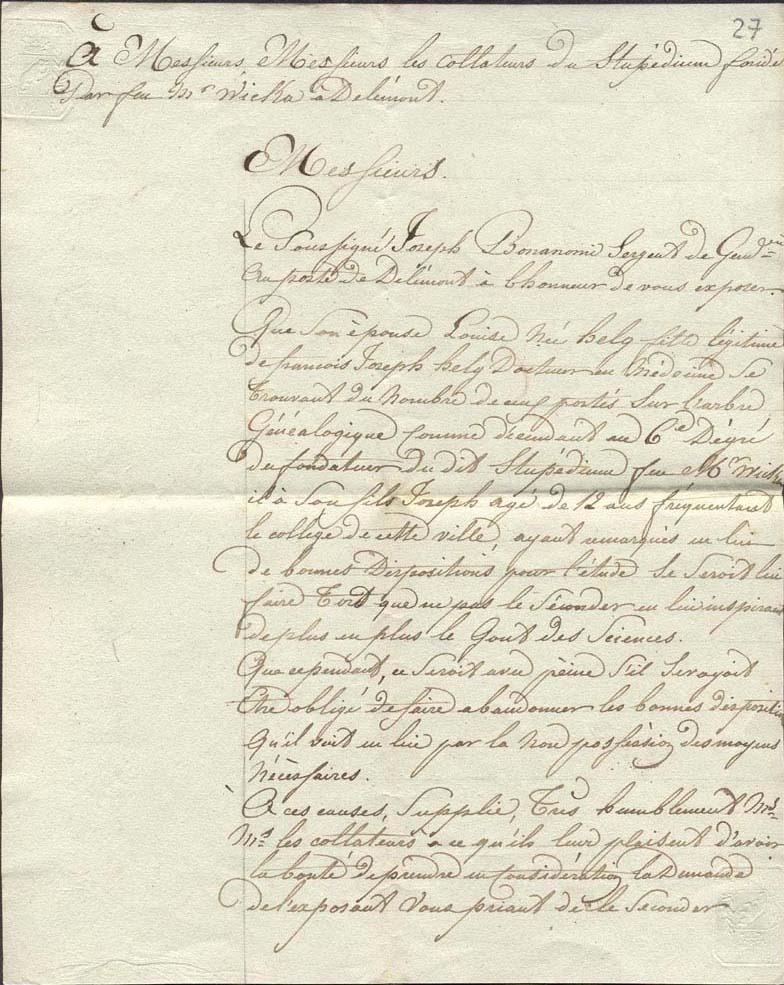 27
À Messieurs, Messieurs les collateurs du Stupédium fondé
Par feu Mr Wicka à Delémont.
Messieurs.
Le Soussigné Joseph Bonanomi Sergent de Gend.rie
au poste de Délémont à l'honneur de vous exposer
Que Son èpouse Louise Né helg fille légitime
de francois Joseph helg Docteur en Médecine se
trouvant du Nombre de ceux portés Sur l'arbre
Généalogique comme décendant au 6e Dégré
du fondateur du dit Stupédium feu Mr Wicka
il à Son fils Joseph agé de 12 ans fréquentant
le collége de cette ville, ayant remarqués en lui
de bonnes Dispositions, pour l'étude Se Seroit lui
faire Tort que ne pas le Séconder en lui inspirant
de plus en plus le Gout des Sciences.
Que cependant, ce Seroit avec pèine S'il Se voyoit
être obligé de faire abandonner les bonnes dispositions
Qu'il voit en lui par la non possèssion des moyens
Nécèssaires.
À ces causes, Supplie, Très humblement Mrs
Mrs les collateurs à ce qu'ils leur plaisent d'avoir
la bonté de prendre en considération la Demande
de l'exposant Vous priant de le Seconder